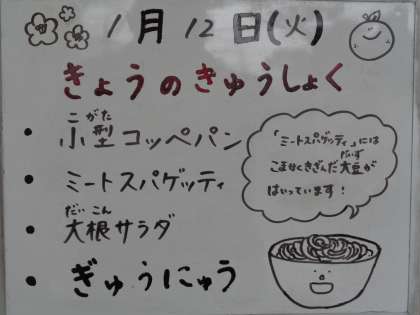 1月12日(火)
きょうのきゅうしょく
・小型コッペパン
こがた
・ミートスパゲッティ
・大根サラダ
だいこん
・ぎゅうにゅう
「ミートスパゲッティ」には
こまかくきざんだ大豆が
だいず
はいっています!